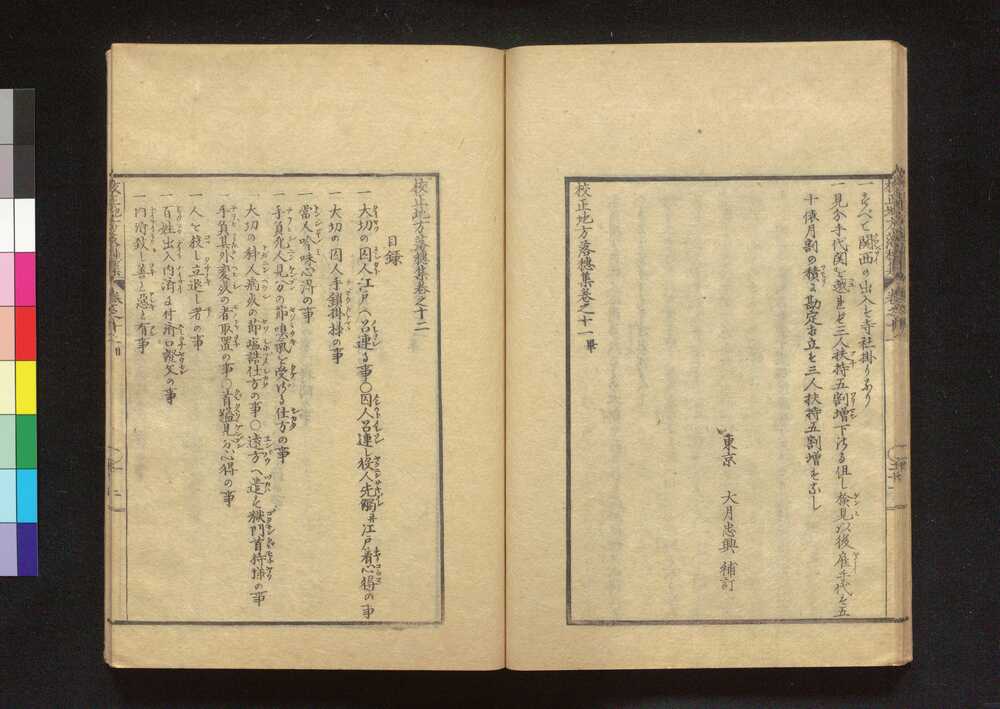 一すべて関西の出入ハ寺社掛りあり
一見分手代関を越れバ三人扶持五割増下さる但し検見以後雇手代ハ五
十俵月割の積に勘定相立ち三人扶持五割増もなし
東京 大月忠興 補訂
校正地方落穂集巻之十一畢
校正地方落穂集巻之十二
目録
一大切の囚人江戸へ召連る事〇囚人召連し役人先触并江戸着心得の事
一大切の囚人手鎖掛様の事
一當人吟味心得の事
一手負死人見分の節嗅氣を受ざる仕方の事
大切の科人病死の節塩詰仕方の事〇遠方へ遣す獄門首持様の事
手負其外変死の者取置の事〇首縊見分心得の事
一人を殺し立退し者の事
一百姓出入内済に付済口證文の事
一内済致し善と悪と有事